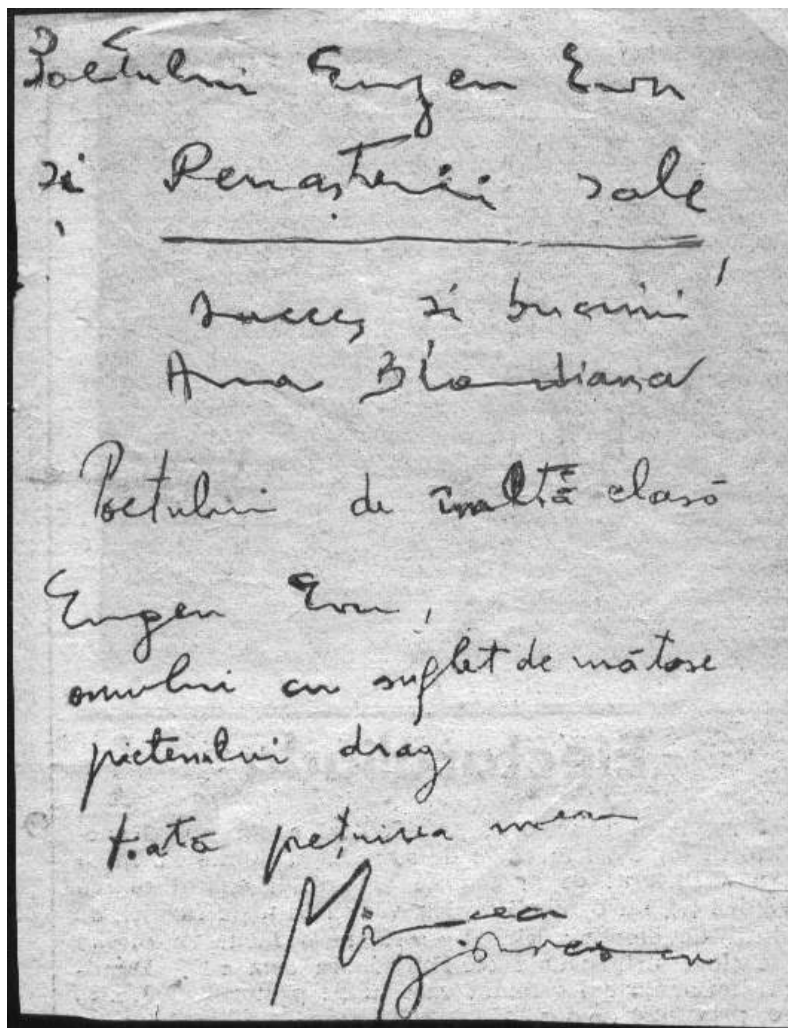 Poetului Eugen Evu
și Renașterii sale
succes și bucurii
Ana Blandiana
Poetului de înaltă clasă
Eugen Evu,
omului cu suflet de mătase
prietenului drag
toată prețuirea mea
Mircea